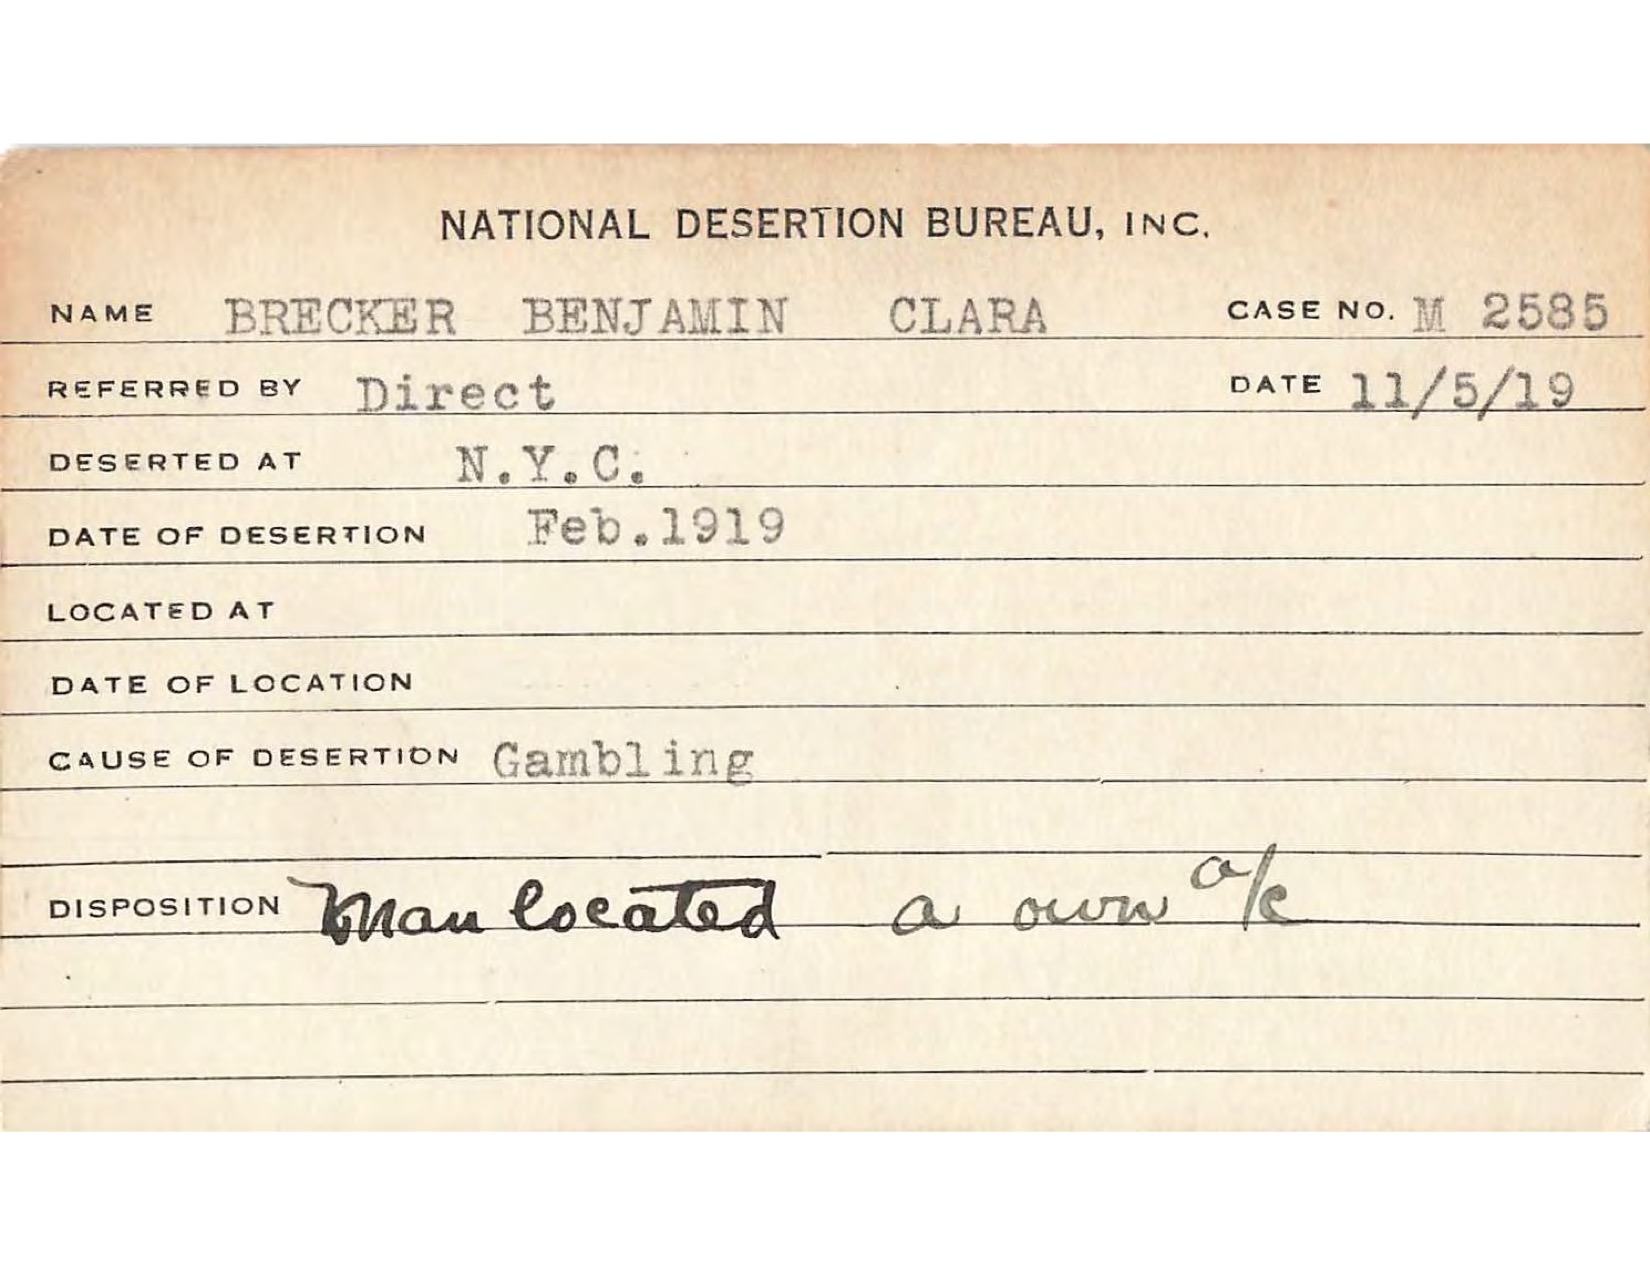 NATIONAL DESERTION BUREAU, INC.
NAME BRECKER BENJAMIN CLARA CASE NO. M 2585
REFERRED BY Direct DATE 11/5/19
DESERTED AT N.Y.C.
DATE OF DESERTION Feb.1919
LOCATED AT
DATE OF LOCATION
CAUSE OF DESERTION Gambling
DISPOSITION Man located a own a/c